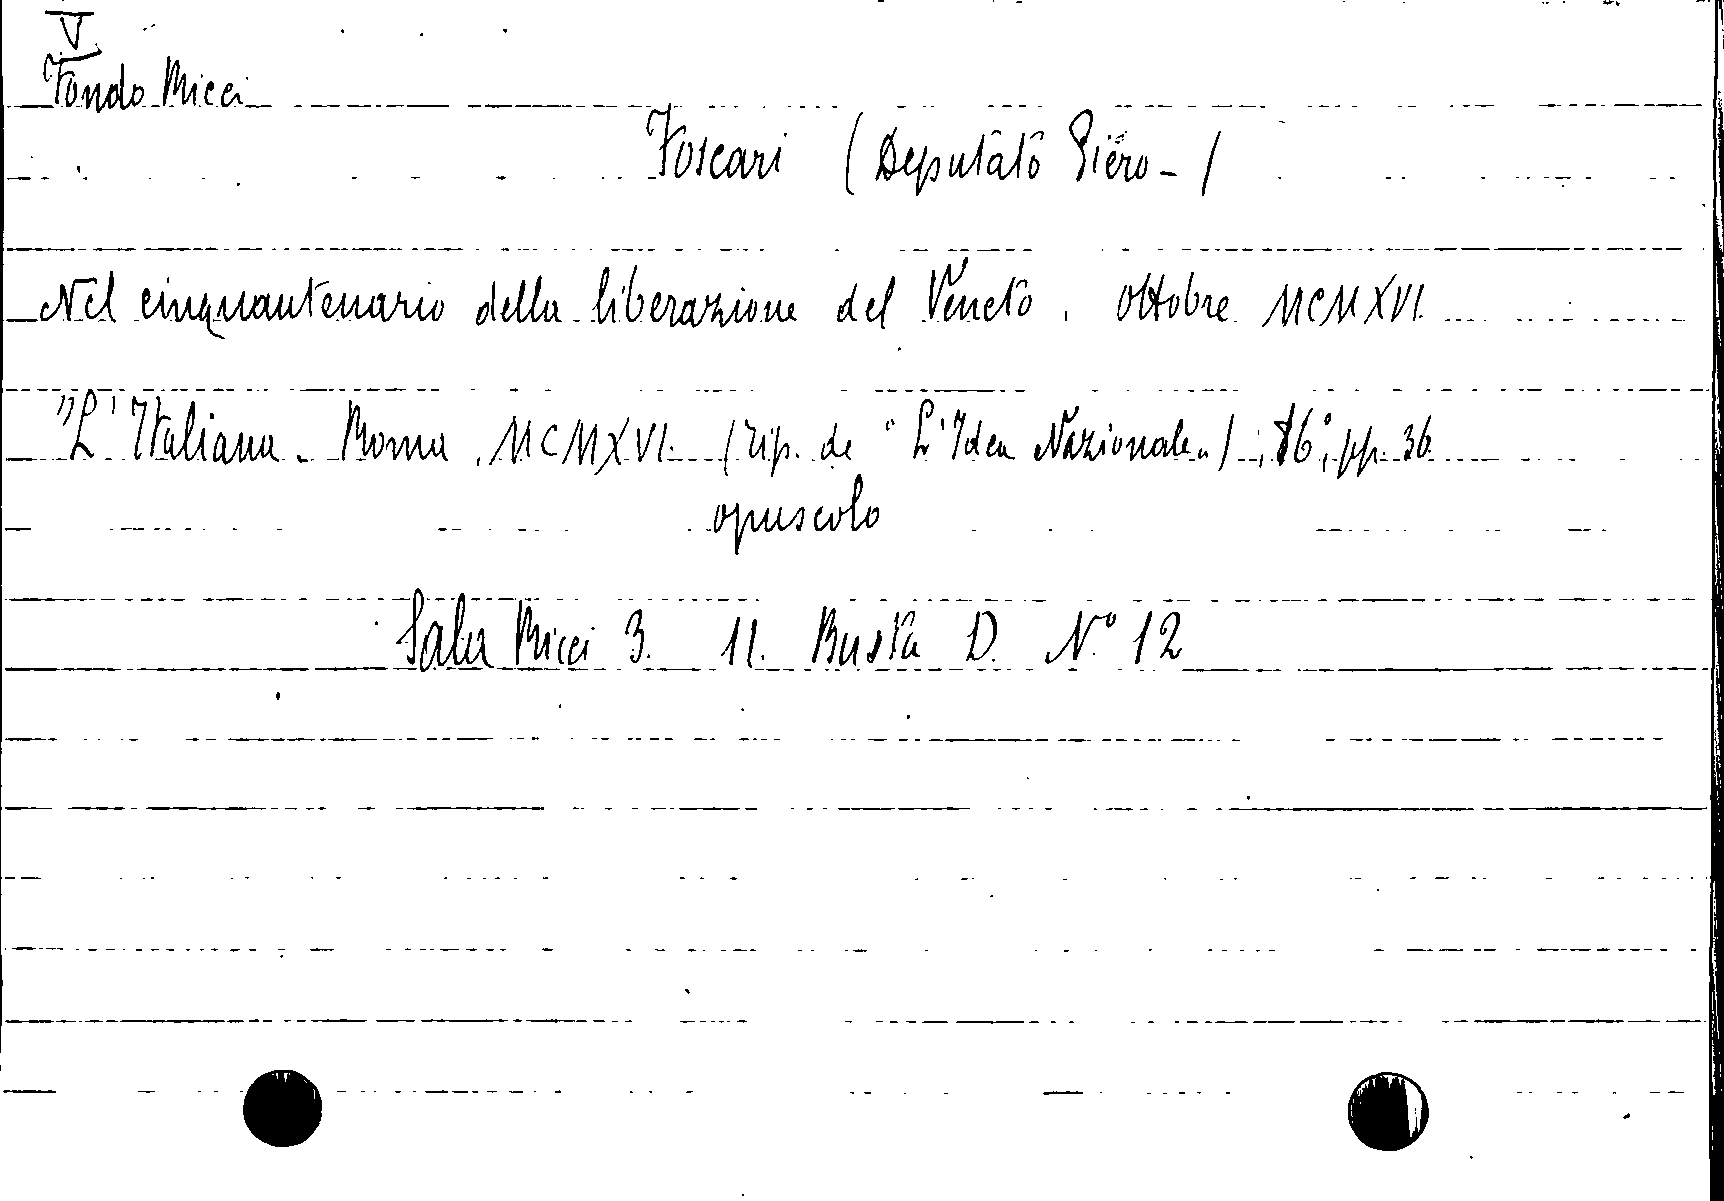 V
Fondo Ricci
Foscari (Deputato Piero-)
Nel cinquantenario della liberazione del Veneto. Ottobre MCMXVI
"L'Italiana„ Roma. MCMXVI. (tip. de "L'Idea Nazionale„); 16°, pp. 36
opuscolo
Sala Ricci 3. 11. Busta D. N° 12